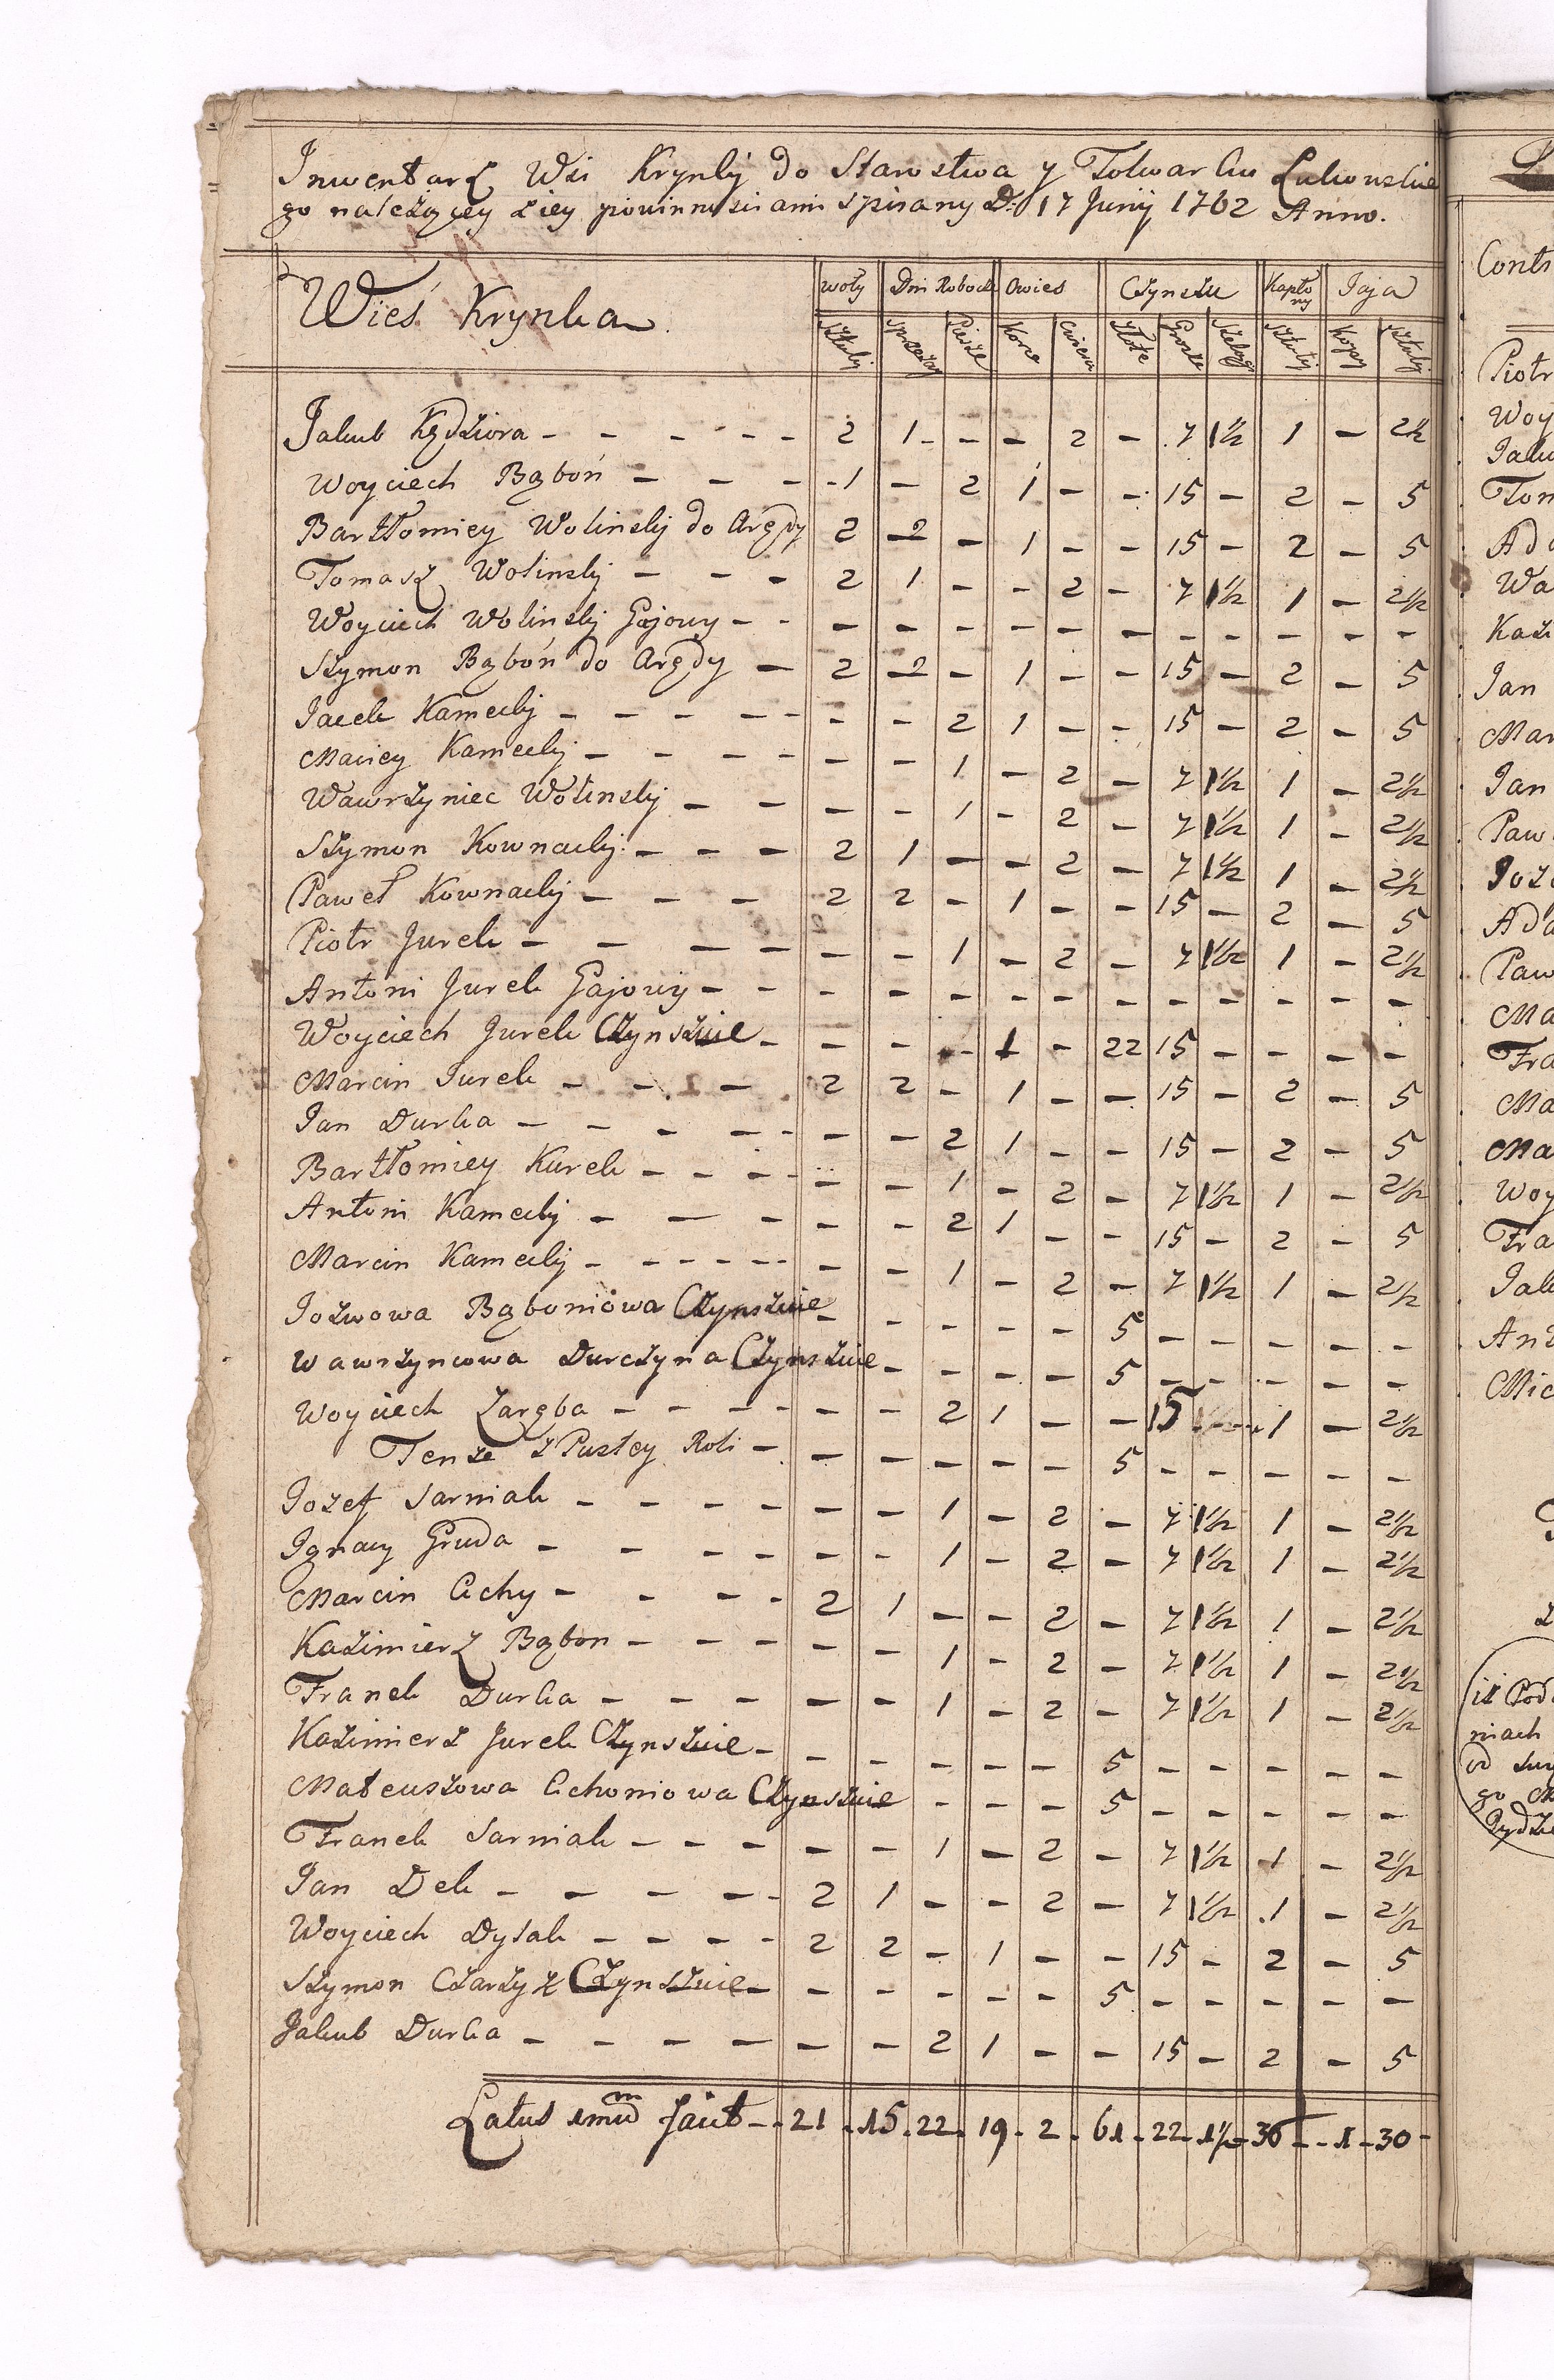 Inwentarz Wsi Krynki do Starostwa y Folwarku Łukowskie
go należącey z iey powinnosciami spisany D: 17 Junij 1762 Anno.
Wieś Krynka
woły Dni Robocze Owies Czynszu Kapłony Jaja
sztuki sprzężay Piesze Korce Cwierci Złote Grosze Szelągi sztuki Kopy sztuki
Jakub Kędziora - - - - - 2 1 - - - 2 - 7 1½ 1 - 2½
Woyciech Bąboń - - - 1 - 2 1 - - 15 - 2 - 5
Bartłomiey Wolinskij do Arędy 2 2 - 1 - - 15 - 2 - 5
Tomasz Wolinskij - - - 2 1 - - 2 - 7 1½ 1 - 2½
Woyciech Wolinskij Gajowy - - - - - - - - - - - - -
Szymon Bąboń do Arędy - 2 2 - 1 - - 15 - 2 - 5
Jacek Kameckij - - - - - - - 2 1 - - 15 - 2 - 5
Maciey Kameckij - - - - - - 1 - 2 - 7 1½ 1 - 2½
Wawrzyniec Wolinskij - - - - 1 - 2 - 7 1½ 1 - 2½
Szymon Kownackij - - - 2 1 - - 2 - 7 1½ 1 - 2½
Paweł Kownackij - - - 2 2 - 1 - - 15 - 2 - 5
Piotr Jurek - - - - - - 1 - 2 - 7 1½ 1 - 2½
Antoni Jurek Gajowy - - - - - - - - - - - - -
Woyciech Jurek Czynsznie - - - - - 1 - 22 15 - - - -
Marcin Jurek - - - 2 2 - 1 - - 15 - 2 - 5
Jan Durka - - - - - - - 2 1 - - 15 - 2 - 5
Bartłomiey Kurek - - - - - - 1 - 2 - 7 1½ 1 - 2½
Antoni Kameckij - - - - - 2 1 - - 15 - 2 - 5
Marcin Kameckij - - - - - - - - 1 - 2 - 7 1½ 1 - 2½
Jozwowa Bąboniowa Czynsznie - - - - - - 5 - - - - -
Wawrzyncowa Durczyna Czynsznie - - - - 5 - - - - -
Woyciech Zaręba - - - - - - 2 1 - - 15 1 - 2½
Tenże z Pustey Roli - - - - - - 5 - - - - -
Jozef Sarniak - - - - - - 1 - 2 - 7 1½ 1 - 2½
Ignacy Gruda - - - - - - 1 - 2 - 7 1½ 1 - 2½
Marcin Cichy - - - - 2 1 - - 2 - 7 1½ 1 - 2½
Kazimierz Bąbon - - - - - - 1 - 2 - 7 1½ 1 - 2½
Franek Durka - - - - - - 1 - 2 - 7 1½ 1 - 2½
Kazimierz Jurek Czynsznie - - - - - - - 5 - - - - -
Mateuszowa Cichoniowa Czynsznie - - - 5 - - - - -
Franek Sarniak - - - - - 1 - 2 - 7 1½ 1 - 2½
Jan Dek - - - - - 2 1 - - 2 - 7 1½ 1 - 2½
Woyciech Dysak - - - - 2 2 - 1 - - 15 - 2 - 5
Szymon Czarzyz Czynsznie - - - - - - 5 - - - - -
Jakub Durka - - - - - - 2 1 - - 15 - 2 - 5
Latus 1mum facit - - 21 - 15 - 22 - 19 - 2 - 61 - 22 - 1½ - 36 - - 1 - 30 -
Piotr
Woy
Jaku
Tom
Ada
Wa
Kazi
Jan
Mar
Jan
Paw
Joze
Ada
Paw
Ma
Fra
Ma
Ma
Woy
Fra
Jak
Ant
Mic